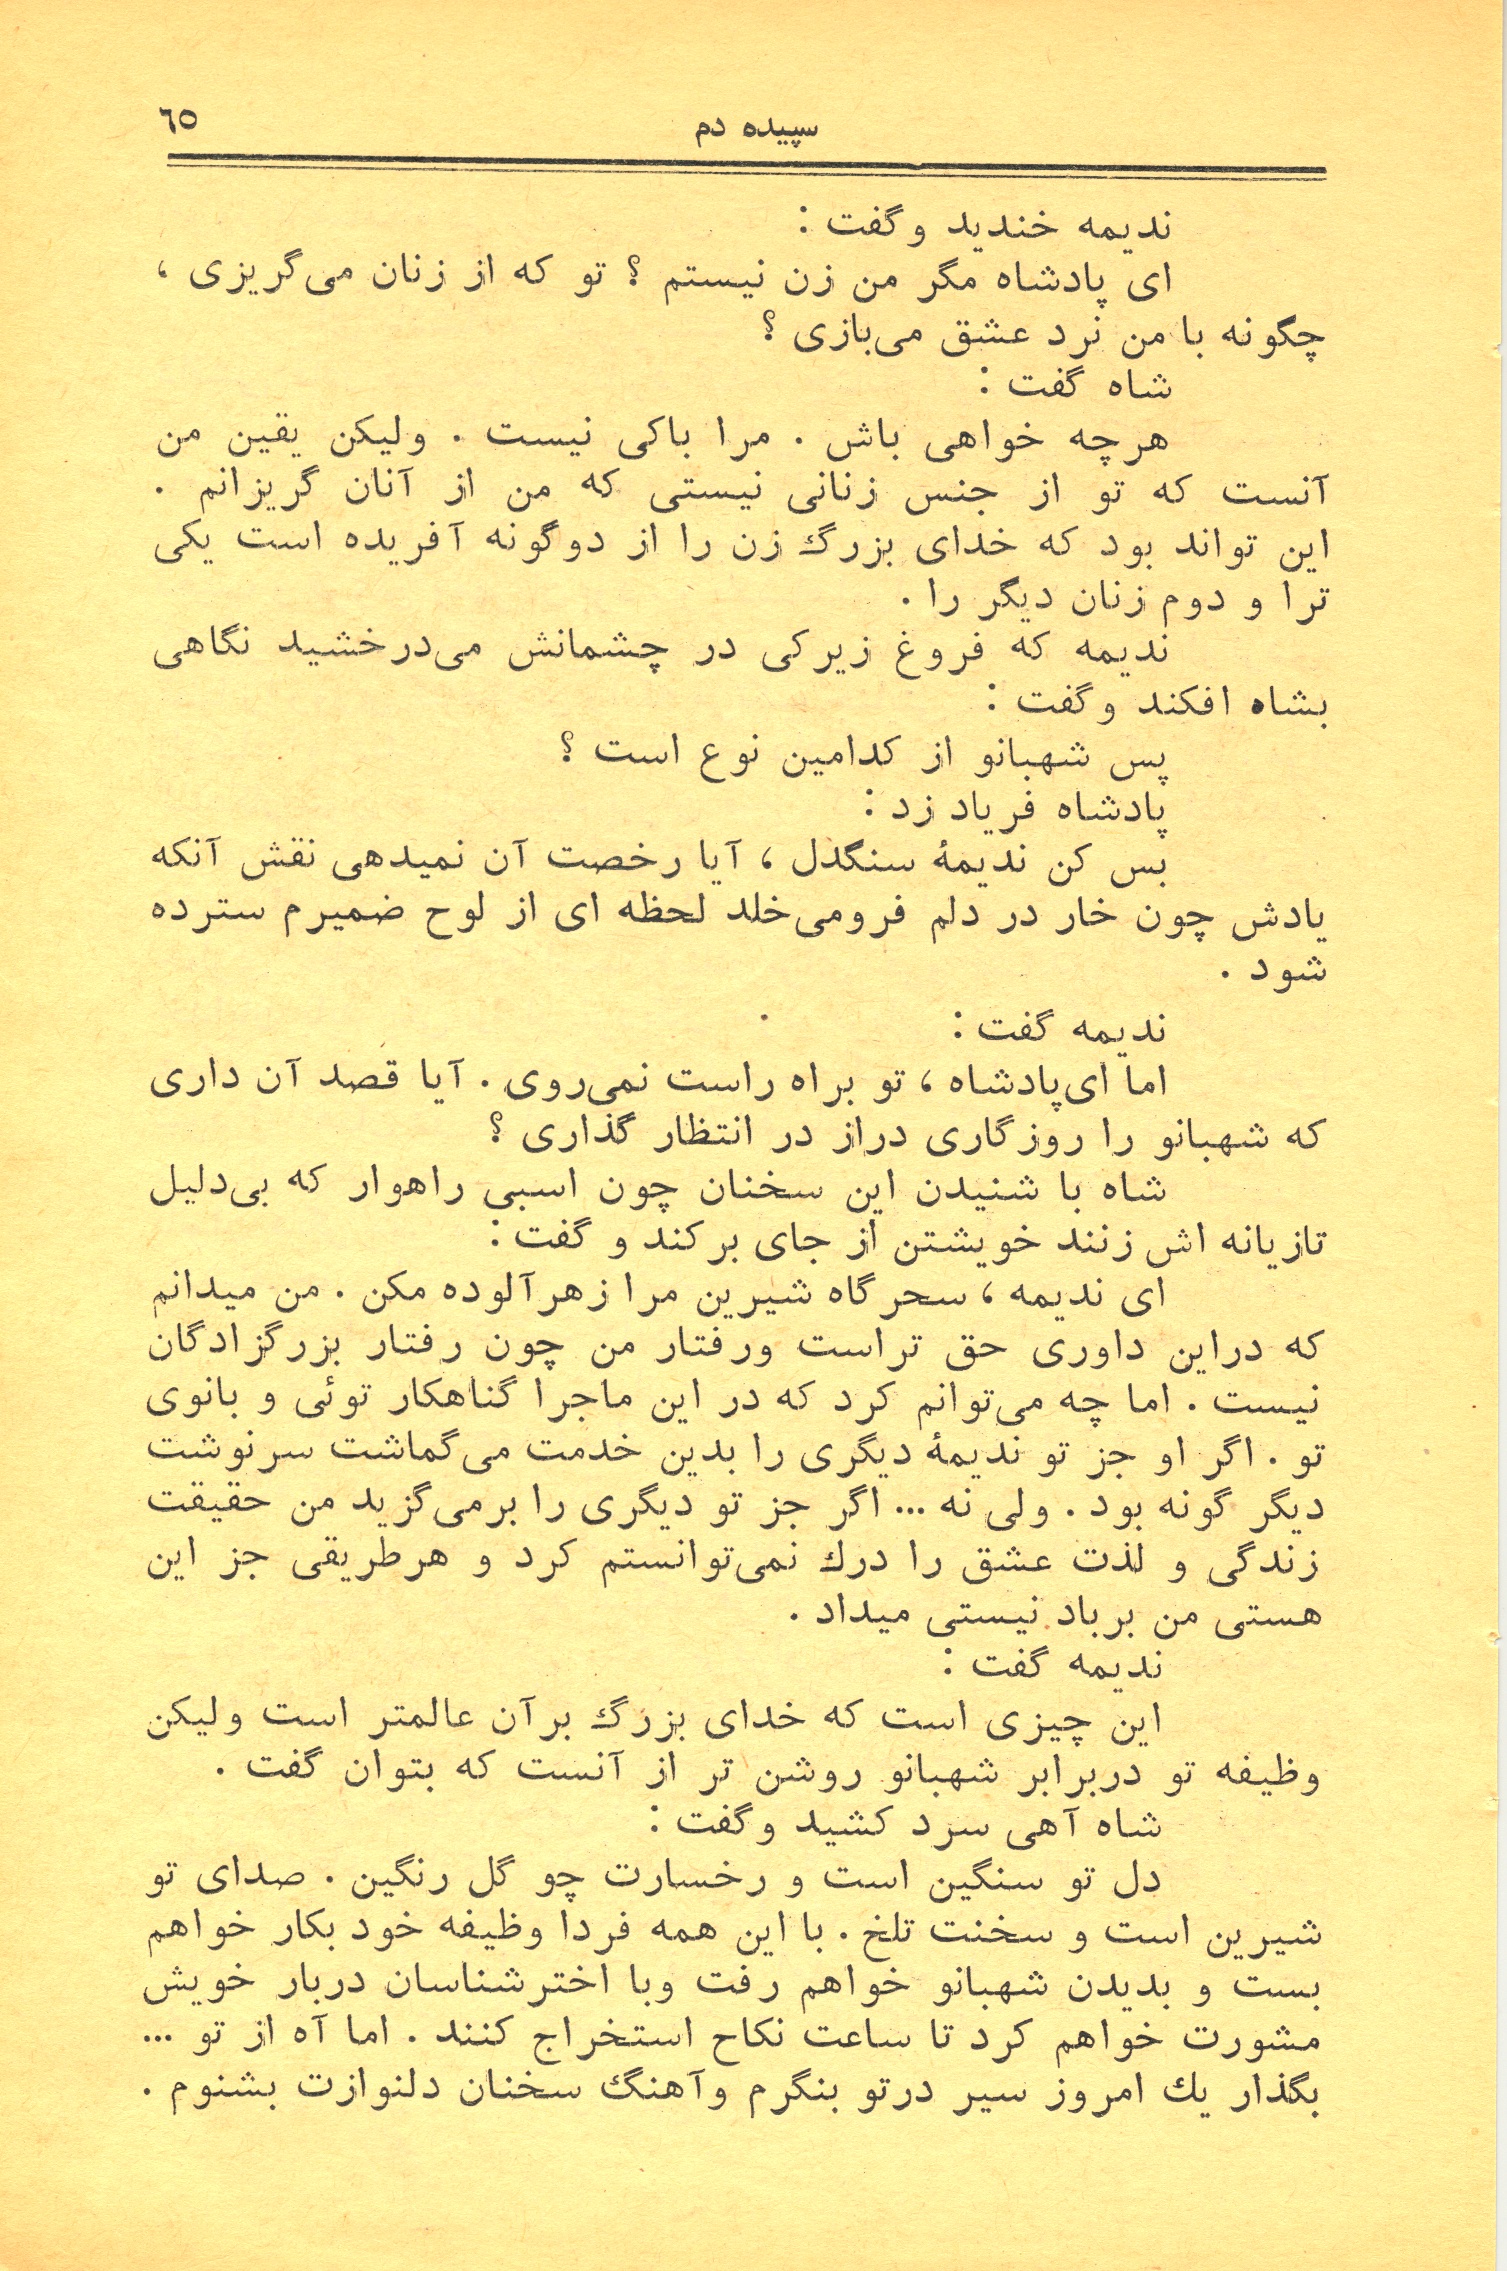 سپیده دم ٦٥
ندیمه خندید وگفت :
ای پادشاه مگر من زن نیستم ؟ تو که از زنان می‌گریزی ،
چگونه با من نرد عشق می‌بازی ؟
شاه گفت :
هرچه خواهی باش . مرا باکی نیست . ولیکن یقین من
آنست که تو از جنس زنانی نیستی که من از آنان گریزانم .
این تواند بود که خدای بزرگ زن را از دوگونه آفریده است یکی
ترا و دوم زنان دیگر را .
ندیمه که فروغ زیرکی در چشمانش می‌درخشید نگاهی
بشاه افکند وگفت :
پس شهبانو از کدامین نوع است ؟
پادشاه فریاد زد :
بس کن ندیمهٔ سنگدل ، آیا رخصت آن نمیدهی نقش آنکه
یادش چون خار در دلم فرومی‌خلد لحظه ای از لوح ضمیرم سترده
شود .
ندیمه گفت :
اما ای‌پادشاه ، تو براه راست نمی‌روی . آیا قصد آن داری
که شهبانو را روزگاری دراز در انتظار گذاری ؟
شاه با شنیدن این سخنان چون اسبی راهوار که بی‌دلیل
تازیانه اش زنند خویشتن از جای برکند و گفت :
ای ندیمه ، سحرگاه شیرین مرا زهرآلوده مکن . من میدانم
که دراین داوری حق تراست ورفتار من چون رفتار بزرگزادگان
نیست . اما چه می‌توانم کرد که در این ماجرا گناهکار توئی و بانوی
تو . اگر او جز تو ندیمهٔ دیگری را بدین خدمت می‌گماشت سرنوشت
دیگر گونه بود . ولی نه ... اگر جز تو دیگری را برمی‌گزید من حقیقت
زندگی و لذت عشق را درك نمی‌توانستم کرد و هرطریقی جز این
هستی من برباد نیستی میداد .
ندیمه گفت :
این چیزی است که خدای بزرگ برآن عالمتر است ولیکن
وظیفه تو دربرابر شهبانو روشن تر از آنست که بتوان گفت .
شاه آهی سرد کشید وگفت :
دل تو سنگین است و رخسارت چو گل رنگین . صدای تو
شیرین است و سخنت تلخ . با این همه فردا وظیفه خود بکار خواهم
بست و بدیدن شهبانو خواهم رفت وبا اخترشناسان دربار خویش
مشورت خواهم کرد تا ساعت نکاح استخراج کنند . اما آه از تو ...
بگذار يك امروز سیر درتو بنگرم وآهنگ سخنان دلنوازت بشنوم .